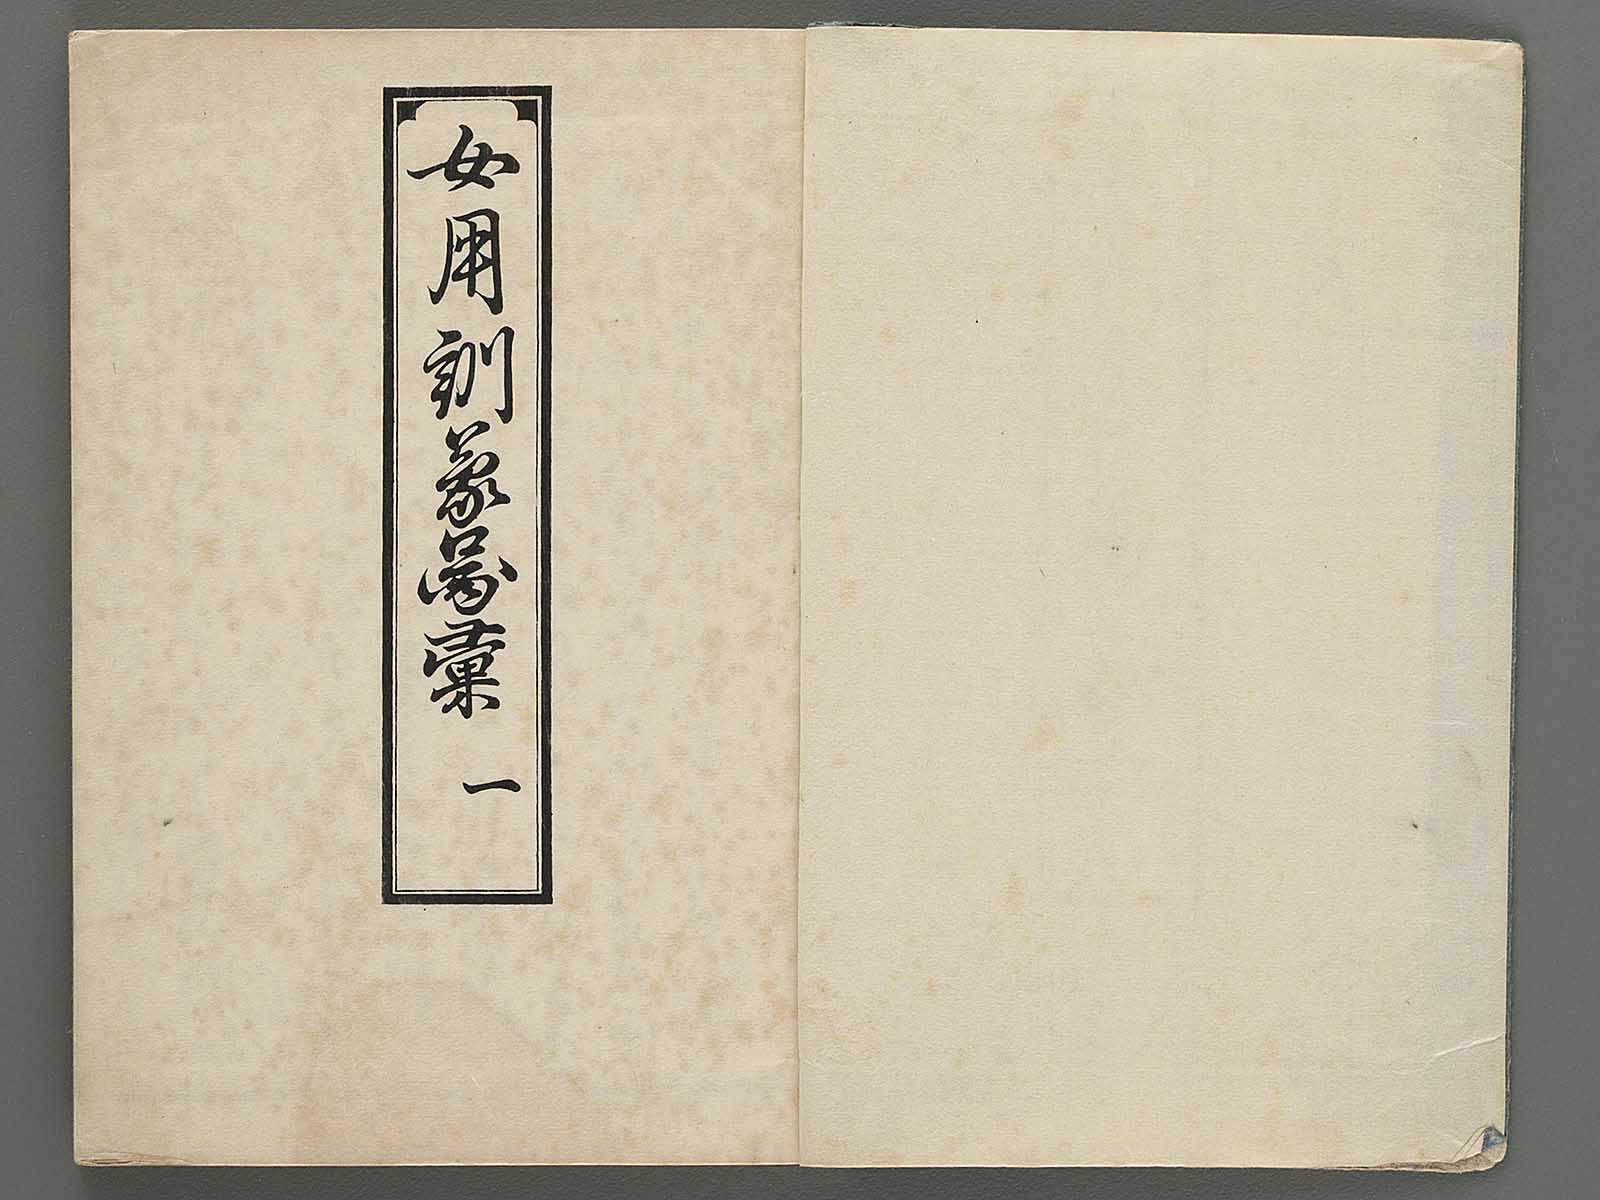 女用訓蒙啚彙 一